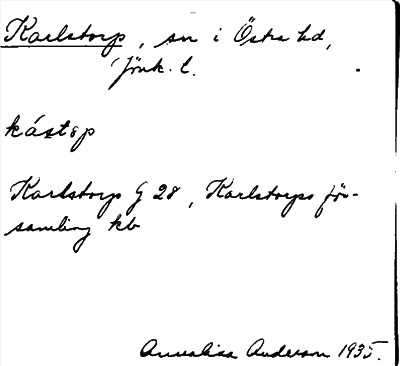 Karlstorp, sn i Östra hd,
Jönk. l.
kástəp
Karlstorp G 28, Karlstorps för-
samling kb
Annalisa Anderson 1935.